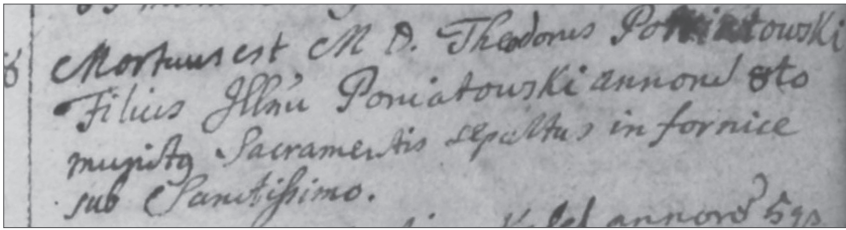 8
Mortuus est M D. Theodorus Poniatowski
Filius Illmi Poniatowski annorū 8to
munitq Sacramentis sepultus in fornice
sub Sanctissimo.
annorū 59